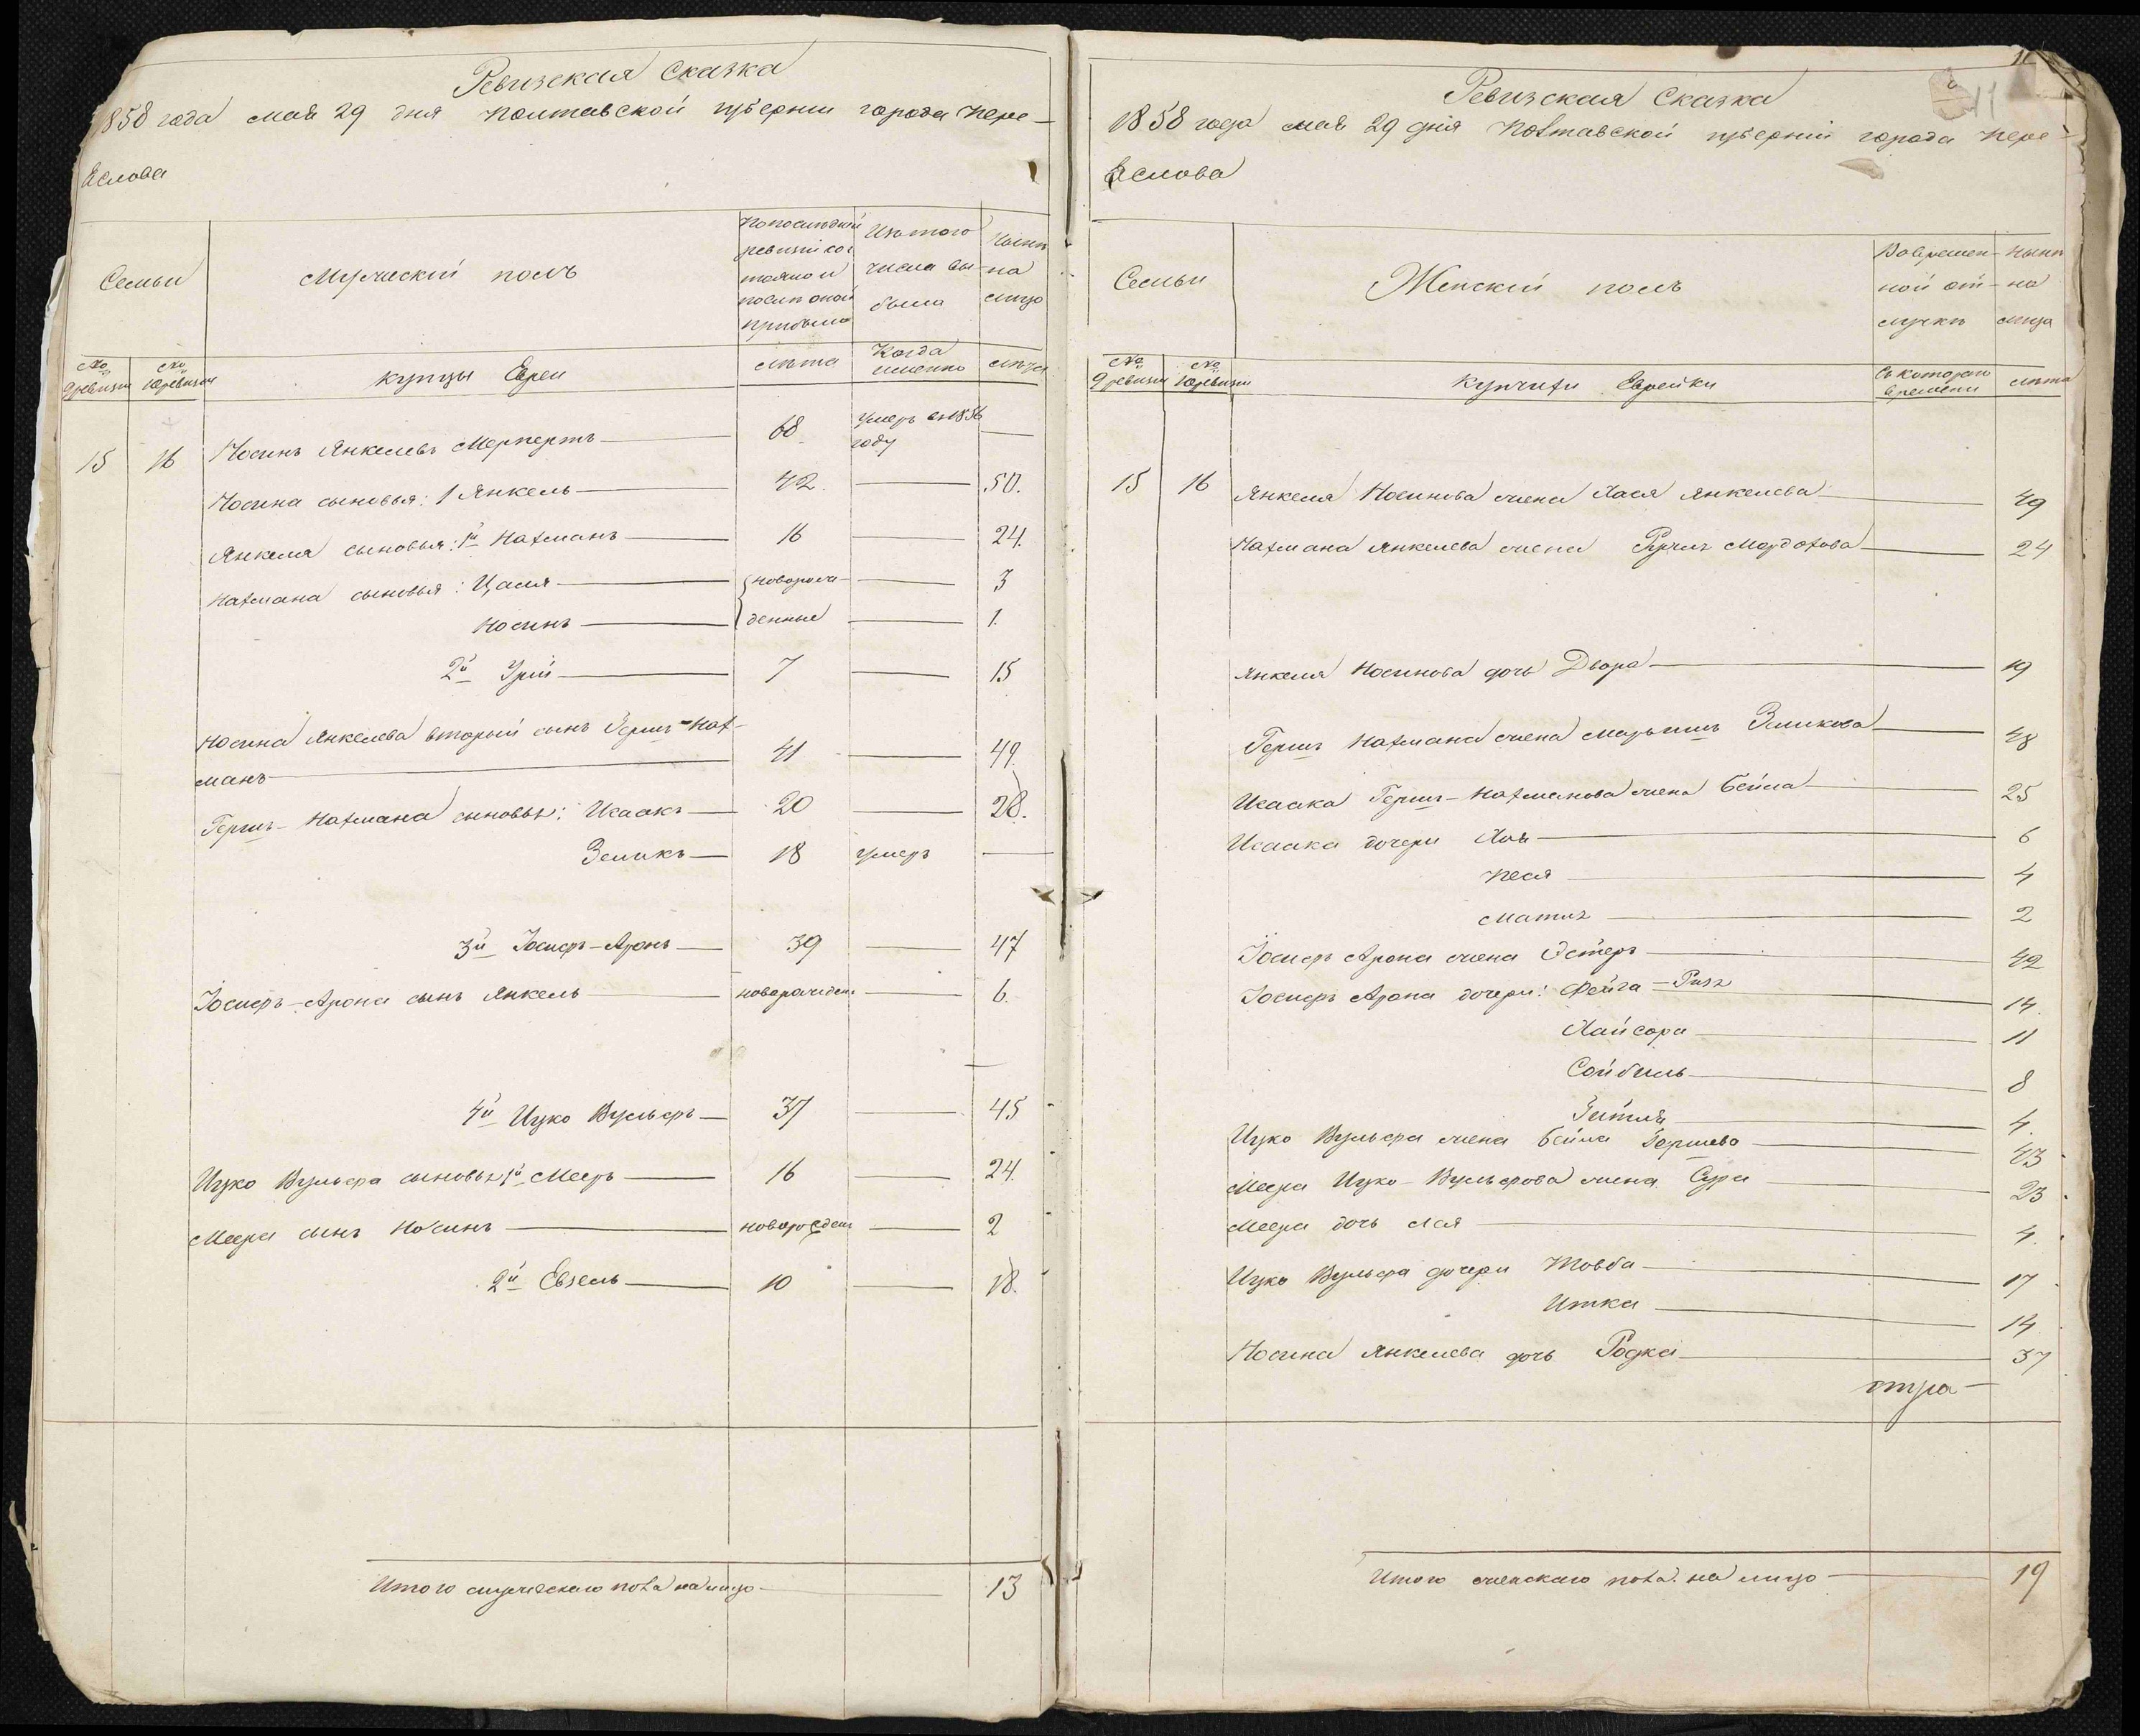 Ревизская Сказка
1858 года мая 29 дня Полтавской губернии города Пере-
яслова
Семьи
Мужеский полъ
По последней ревизии состояло и после оной прибыло
Изъ того числа выбыло
Ныне на лицо
№ 9 ревизии
№ 10 ревизии
купцы Евреи
лета
Когда именно
лета
15 16 Носинъ Янкелевъ Мерпертъ 68 умеръ въ 1856 году
Носина сыновья: 1 Янкель 42 50.
Янкеля сыновья: 1й Нахманъ 16 24.
Нахмана сыновья: Цаля новорож- 3
Носинъ денные 1.
2й Урій 7 15
Носина Янкелева вторый сынъ Гершъ-Нах-
манъ 41 49.
Гершъ-Нахмана сыновья: Исаакъ 20 28.
Зеликъ 18 умеръ
3й Іосифъ-Аронъ 39 47
Іосифъ-Арона сынъ Янкель новорожден 6.
4й Ицко Вульфъ 37 45
Ицко Вульфа сыновья 1й Мееръ 16 24.
Меера сынъ Носинъ новорожден 2
2й Евзель 10 18.
Итого мужескаго пола на лицо 13
11
11
Ревизская Сказка
1858 года мая 29 дня Полтавской губерніи города Пере-
яслова
Семьи
Женскій полъ
Во временной отлучке
Ныне на лицо
№ 9 ревизии
№ 10 ревизии
купчихи Еврейки
Съ котораго времени
лета
15 16 Янкеля Носинова жена Хася Янкелева 49
Нахмана Янкелева жена Рухля Мордохова 24
Янкеля Носинова дочь Двора 19
Гершъ Нахмана жена Марьяшъ Зеликова 48
Исаака Гершъ-Нахманова жена Бейла 25
Исаака дочери Хая 6
Песя 4
Матля 2
Іосифъ Арона жена Эстеръ 42
Іосифъ Арона дочери: Фейга-Риза 14.
Хайсора 11
Сойбиль 8
Зитля 4.
Ицко Вульфа жена Бейла Гершева 43
Меера Ицко-Вульфова жена Сура 23
Меера дочь Лая 4.
Ицко Вульфа дочери Товба 17
Итка 14
Носина Янкелева дочь Родка 37
Итого женскаго пола на лицо 19